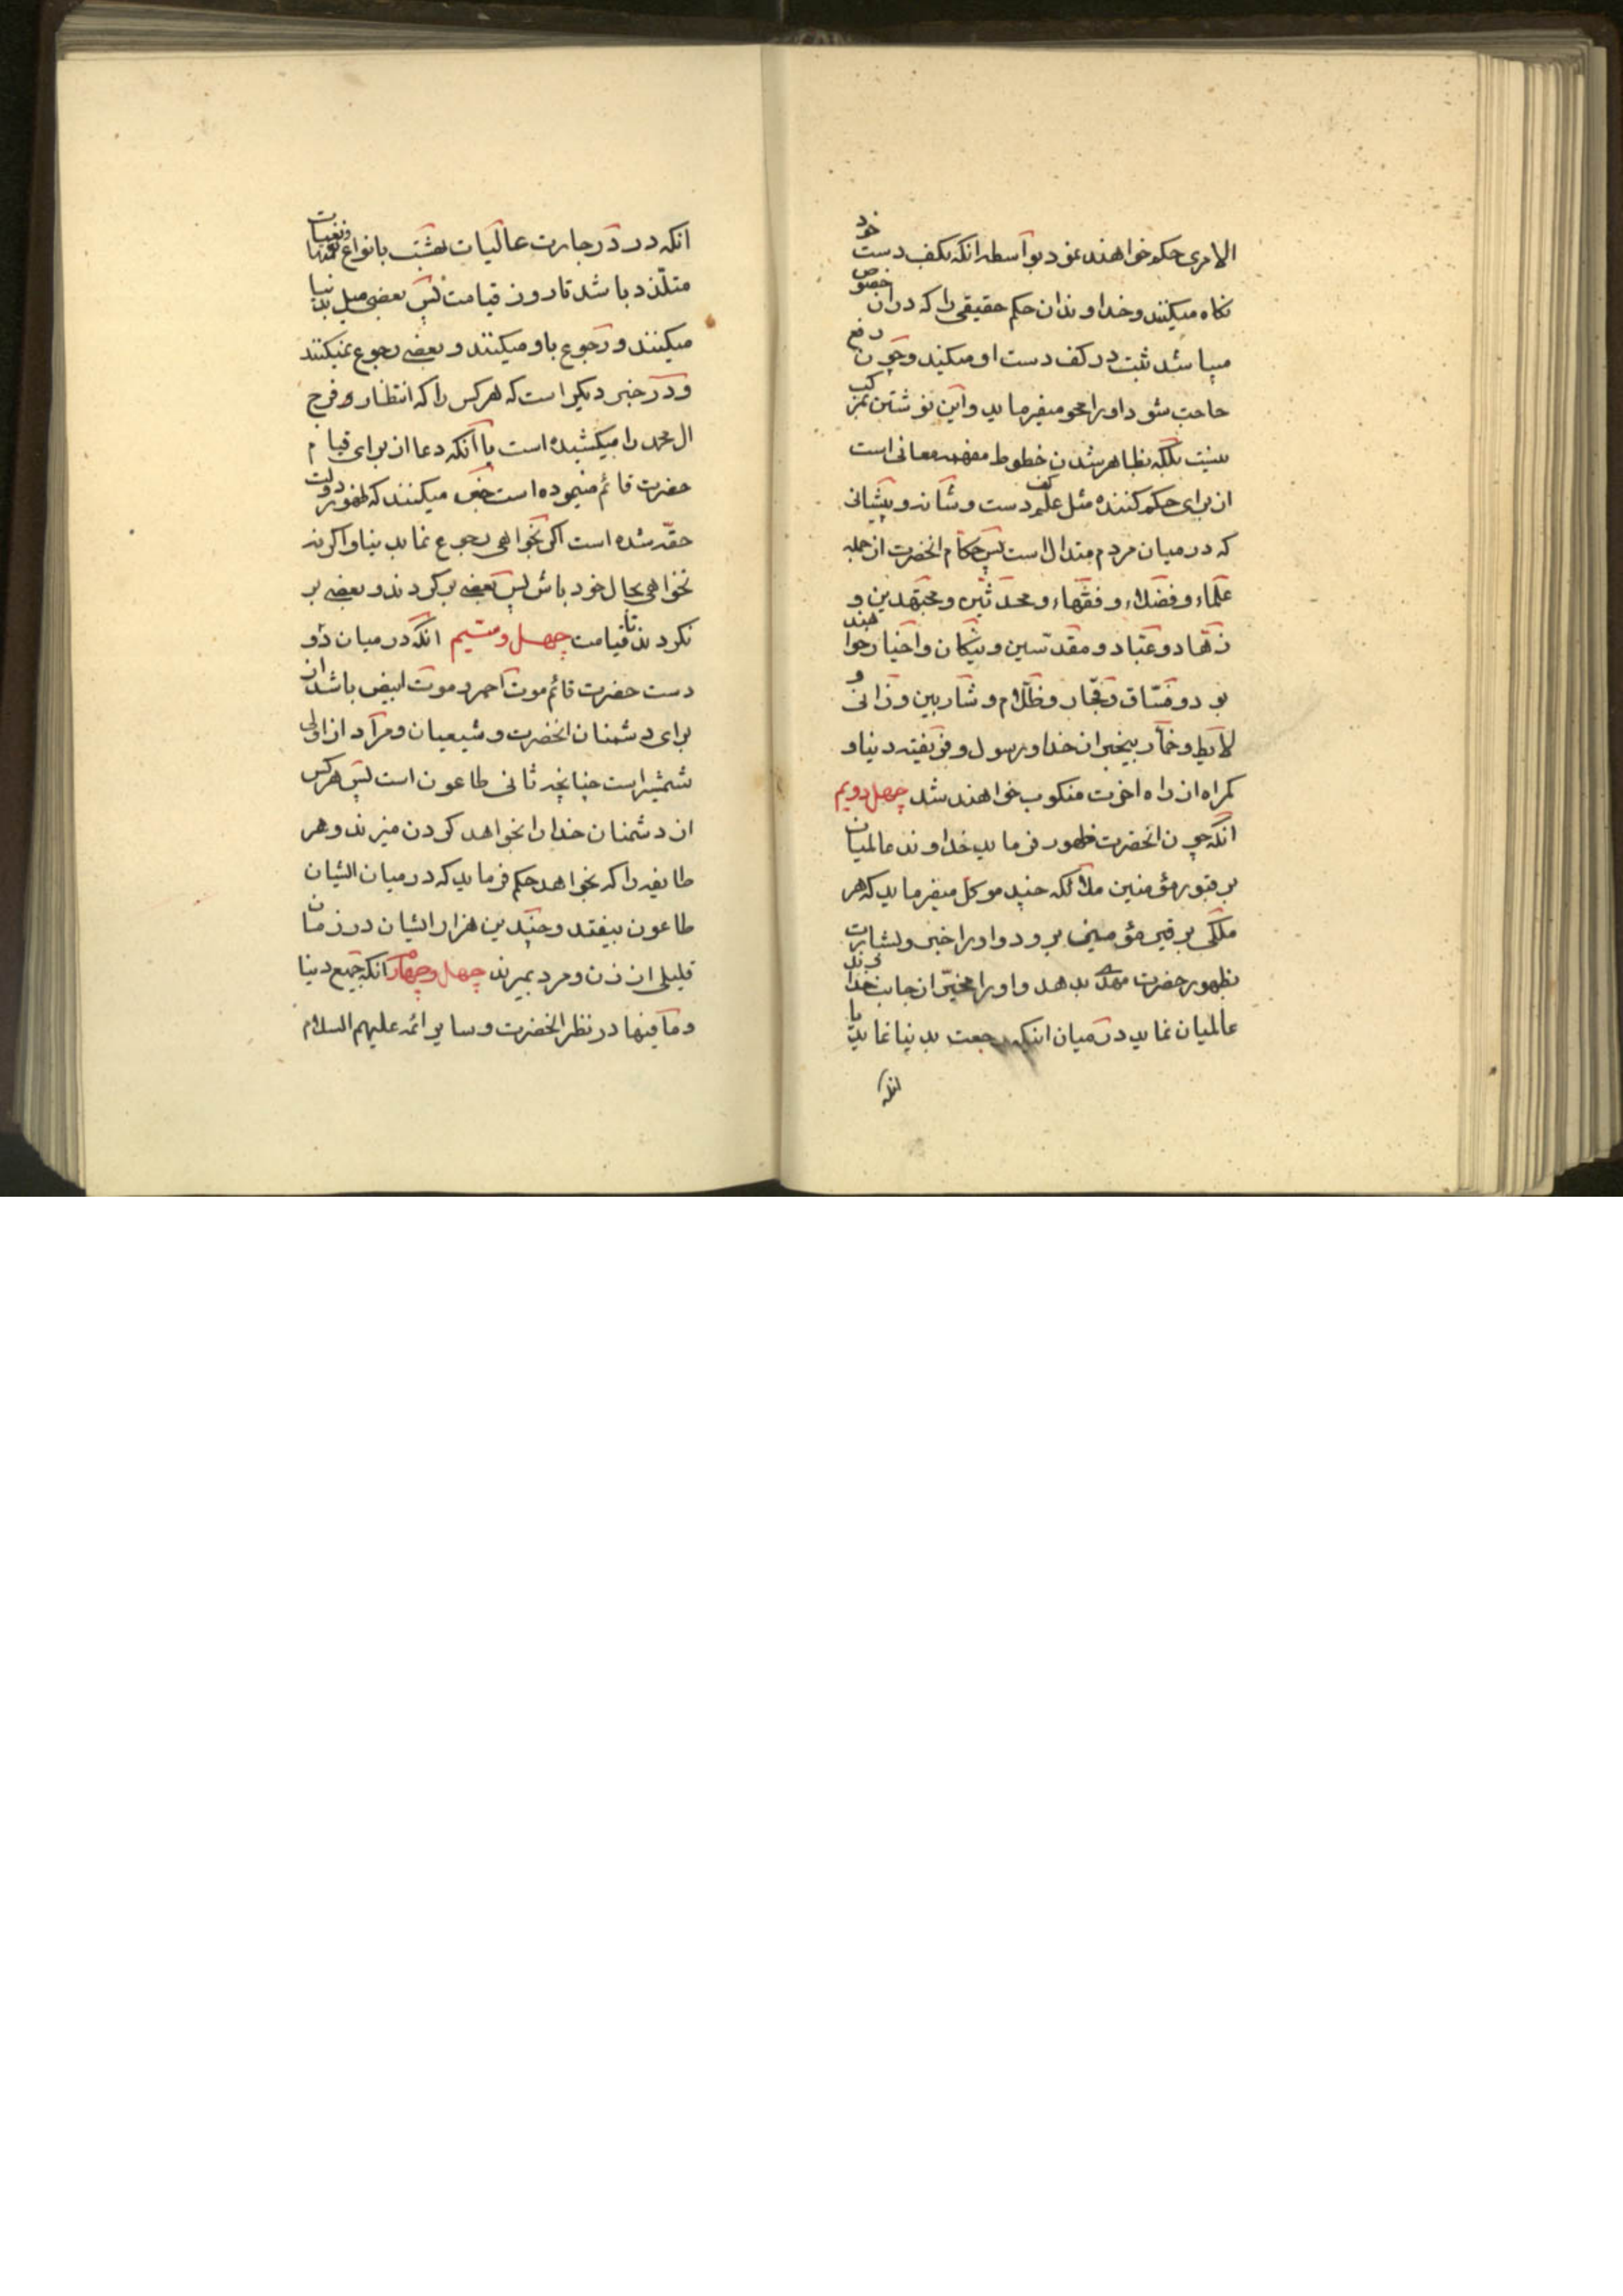 الامری حکم خواهند نمود بواسطه انکه بکف دست خود
نکاه میکنند و خداوندان حکم حقیقی را که در ان خصوص
میباشد ثبت در کف دست او میکند و چون رفع
حاجت شود او را محو میفرماید و این نوشتن بمرکب
نیست بلکه بظاهر شدن خطوط مفهمه معانی است
از برای حکم کننده مثل علم کف دست و شانه و پیشانی
که در میان مردم متداول است پس حکام انحضرت از جمله
علماء و فضلاء و فقهاء و محدثین و مجتهدین و
زهاد و عباد و مقدسین و نیکان و اخیار خواهند
بود و فساق و فجار و ظلام و شاربین و زانی و
لایط و خمار بیخبر از خدا و رسول و فریفته دنیا و
کمراه از راه اخرت منکوب خواهند شد چهل دویم
انکه چون انحضرت ظهور فرماید خداوند عالمیان
بر قبور مؤمنین ملائکه چند موکل میفرماید که هر
ملکی بر قبر مؤمنی برود و او را خبر و بشارت
بظهور حضرت مهدی بدهد و او را مخیر از جانب خداوند
عالمیان نماید در میان اینکه رجعت بدنیا نماید یا
انکه
انکه در درجات عالیات بهشت بانواع نعمتها
متلذذ باشد تا روز قیامت پس بعضی میل بدنیا
میکنند و رجوع باو میکنند و بعضی رجوع نمیکنند
و در خبر دیکر است که هر کس را که انتظار فرج
ال محمد را میکشیده است یا انکه دعا از برای قیام
حضرت قائم مینموده است خبر میکنند که ظهور دولت
حقه شده است اکر بخواهی رجوع نما بدنیا و اکر نه
نخواهی بحال خود باش پس بعضی برکردند و بعضی بر
نکردند تا قیامت چهل و سیم انکه در میان دو
دست حضرت قائم موت احمر و موت ابیض باشد از
برای دشمنان انحضرت و شیعیان و مراد از اولی
شمشیر است چنانچه ثانی طاعون است پس هر کس
از دشمنان خدا را بخواهد کردن میزند و هر
طایفه را که بخواهد حکم فرماید که در میان ایشان
طاعون بیفتد و چندین هزار ایشان در زمان
قلیلی از زن و مرد بمیرند چهل و چهارم انکه جمیع دنیا
و ما فیها در نظر انحضرت و سایر ائمه علیهم السلام